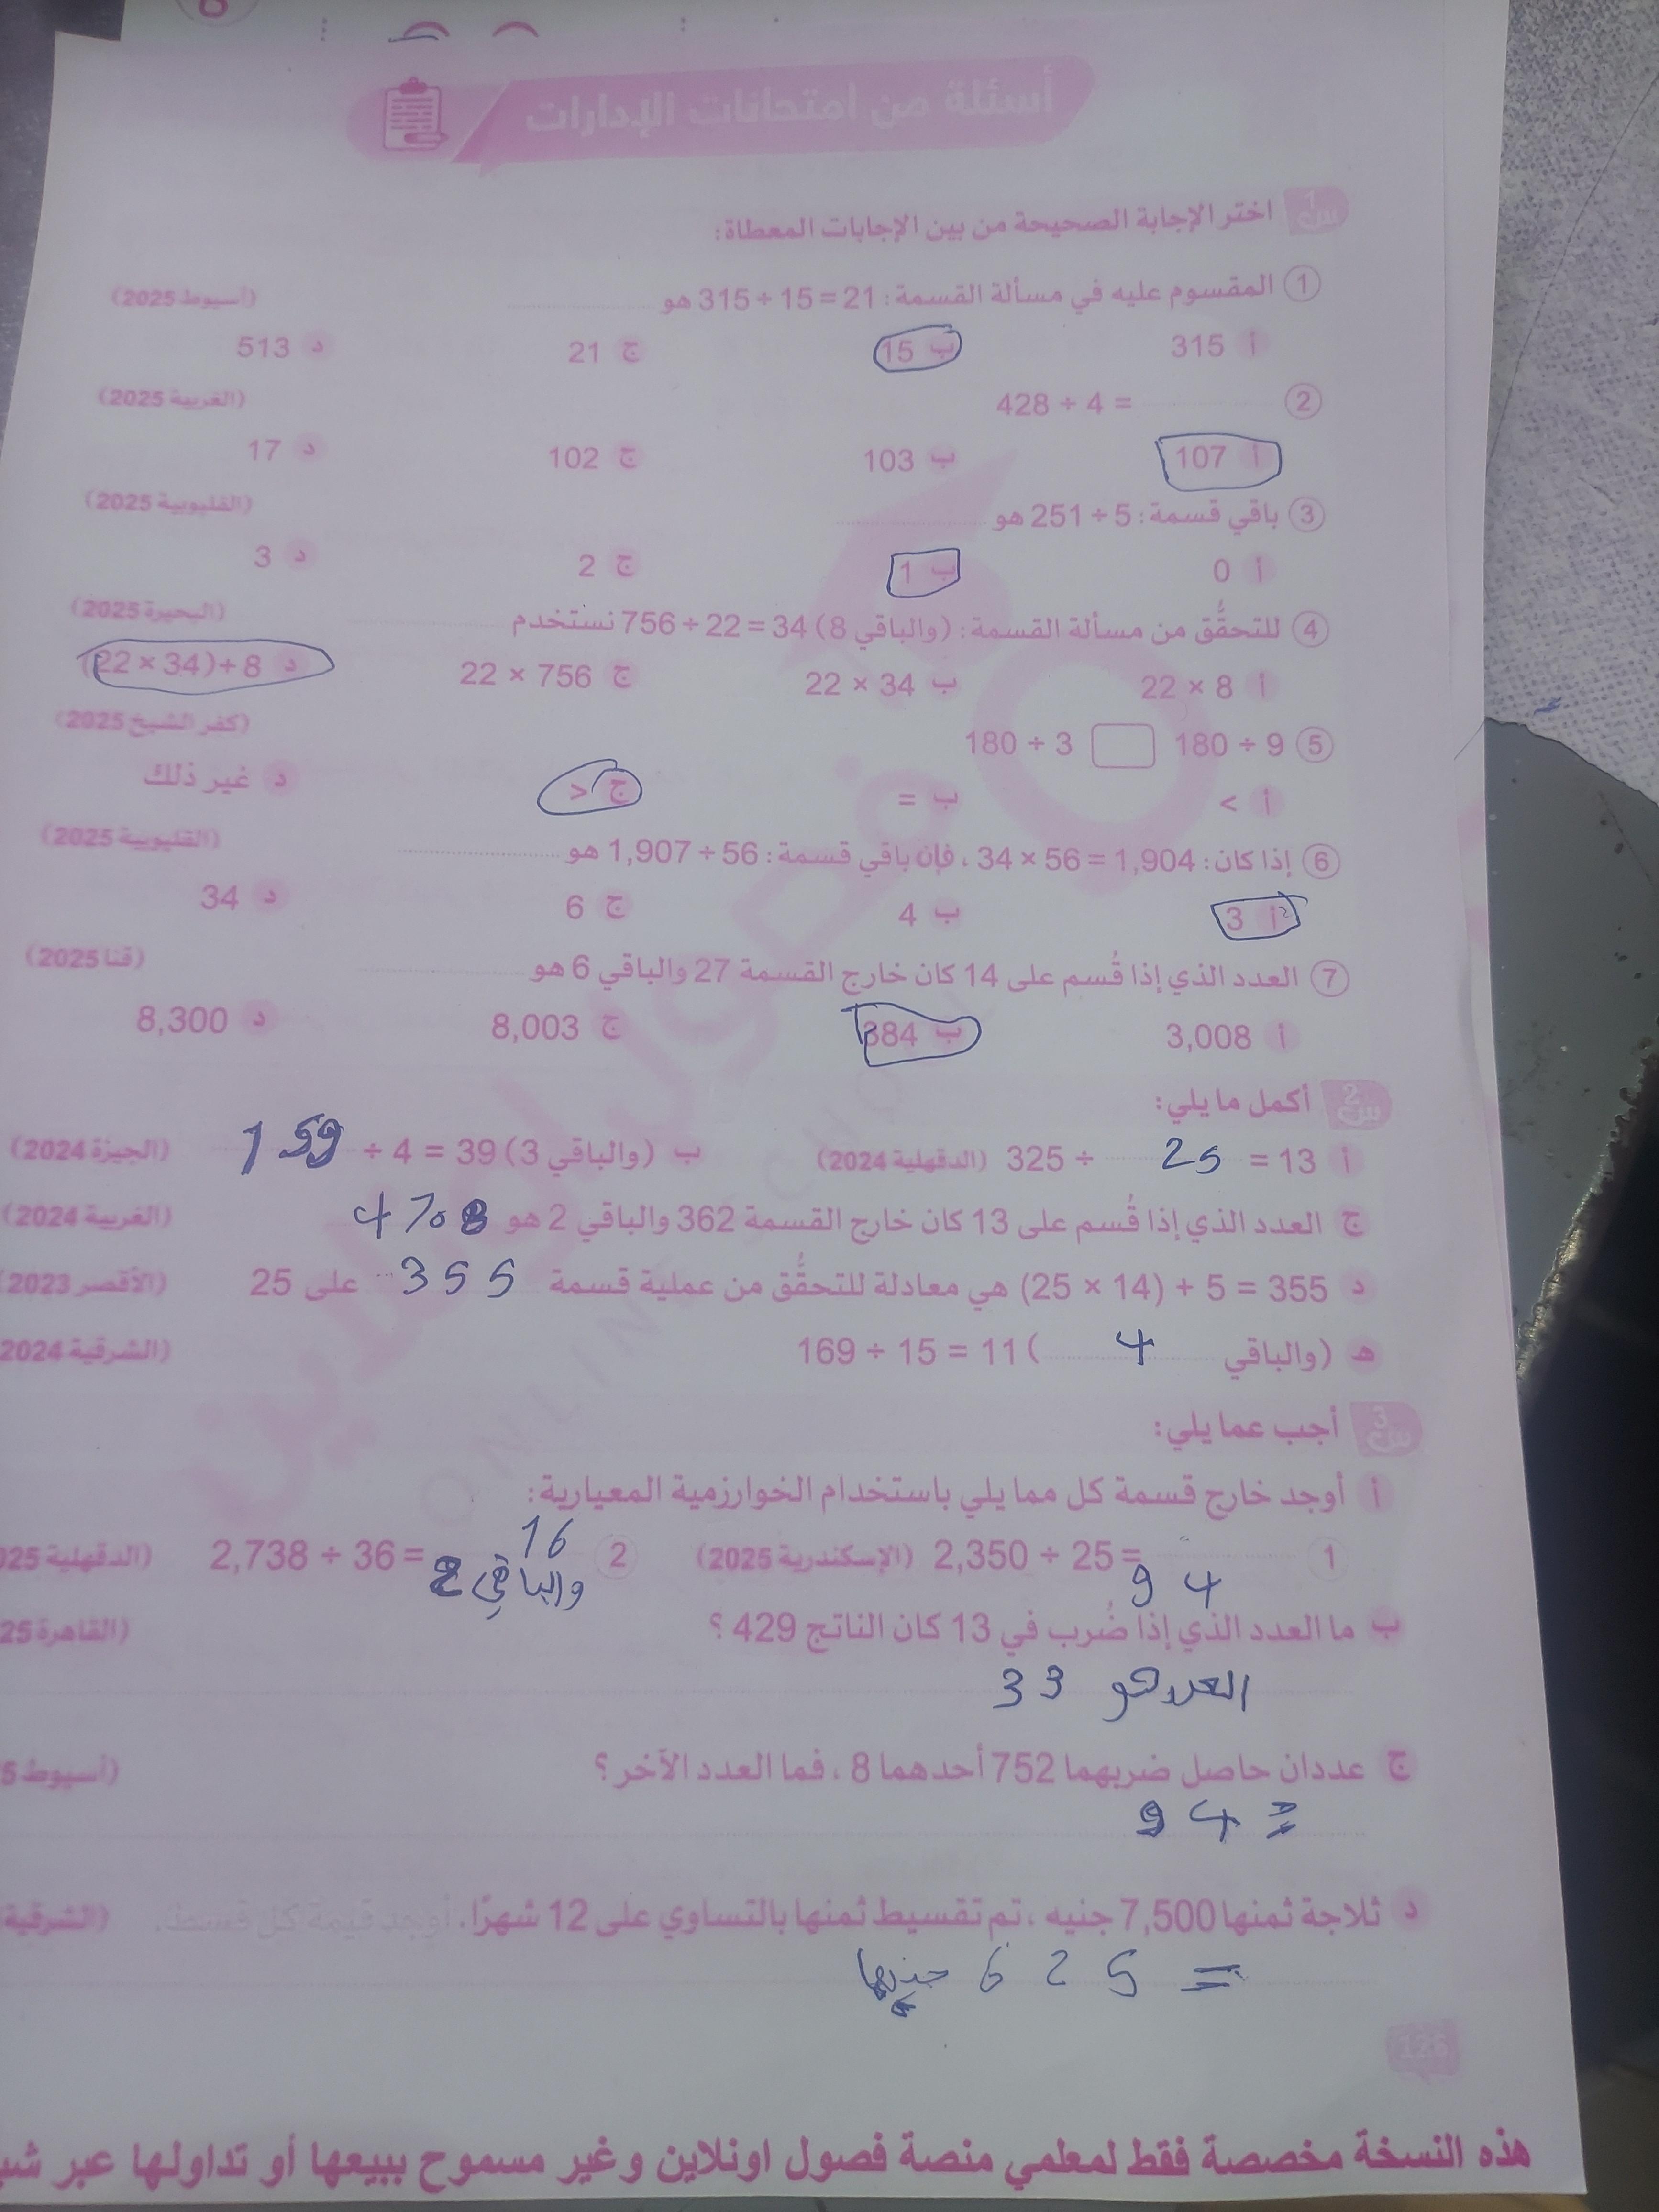 أسئلة من امتحانات الإدارات
س1 اختر الإجابة الصحيحة من بين الإجابات المعطاة:
1 المقسوم عليه في مسألة القسمة: 315 ÷ 15 = 21 هو (أسيوط 2025)
أ 315 ب 15 ج 21 د 513
2 428 ÷ 4 = (الغربية 2025)
أ 107 ب 103 ج 102 د 17
3 باقي قسمة: 251 ÷ 5 هو (القليوبية 2025)
أ 0 ب 1 ج 2 د 3
4 للتحقُّق من مسألة القسمة: 756 ÷ 22 = 34 (والباقي 8) نستخدم (البحيرة 2025)
أ 22 × 8 ب 22 × 34 ج 22 × 756 د (22 × 34) + 8
5 180 ÷ 9 180 ÷ 3 (كفر الشيخ 2025)
أ < ب = ج > د غير ذلك
6 إذا كان: 34 × 56 = 1,904 ، فإن باقي قسمة: 1,907 ÷ 56 هو (القليوبية 2025)
أ 3 ب 4 ج 6 د 34
7 العدد الذي إذا قُسم على 14 كان خارج القسمة 27 والباقي 6 هو (قنا 2025)
أ 3,008 ب 384 ج 8,003 د 8,300
س2 أكمل ما يلي:
أ 325 ÷ 25 = 13 (الدقهلية 2024) ب 159 ÷ 4 = 39 (والباقي 3) (الجيزة 2024)
ج العدد الذي إذا قُسم على 13 كان خارج القسمة 362 والباقي 2 هو 4708 (الغربية 2024)
د (25 × 14) + 5 = 355 هي معادلة للتحقُّق من عملية قسمة 355 على 25 (الأقصر 2023)
هـ 169 ÷ 15 = 11 (والباقي 4 (الشرقية 2024
س3 أجب عما يلي:
أ أوجد خارج قسمة كل مما يلي باستخدام الخوارزمية المعيارية:
1 2,350 ÷ 25 = 94 (الإسكندرية 2025) 2 2,738 ÷ 36 = 16 (الدقهلية 025
والباقي 2
ب ما العدد الذي إذا ضُرب في 13 كان الناتج 429 ؟ (القاهرة 25
العدد هو 33
ج عددان حاصل ضربهما 752 أحدهما 8 ، فما العدد الآخر؟ (أسيوط 5
= 94
د ثلاجة ثمنها 7,500 جنيه ، تم تقسيط ثمنها بالتساوي على 12 شهرًا. أوجد قيمة كل قسط. (الشرقية
= 625 جنيها
126
هذه النسخة مخصصة فقط لمعلمي منصة فصول اونلاين وغير مسموح ببيعها أو تداولها عبر شب